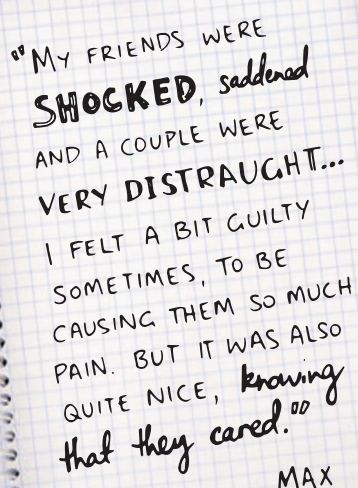 "My FRIENDS WERE
SHOCKED, saddened
AND A COUPLE WERE
VERY DISTRAUGHT...
I FELT A BIT GUILTY
SOMETIMES, TO BE
CAUSING THEM SO MUCH
PAIN. BUT IT WAS ALSO
QUITE NICE, knowing
that they cared."
MAX